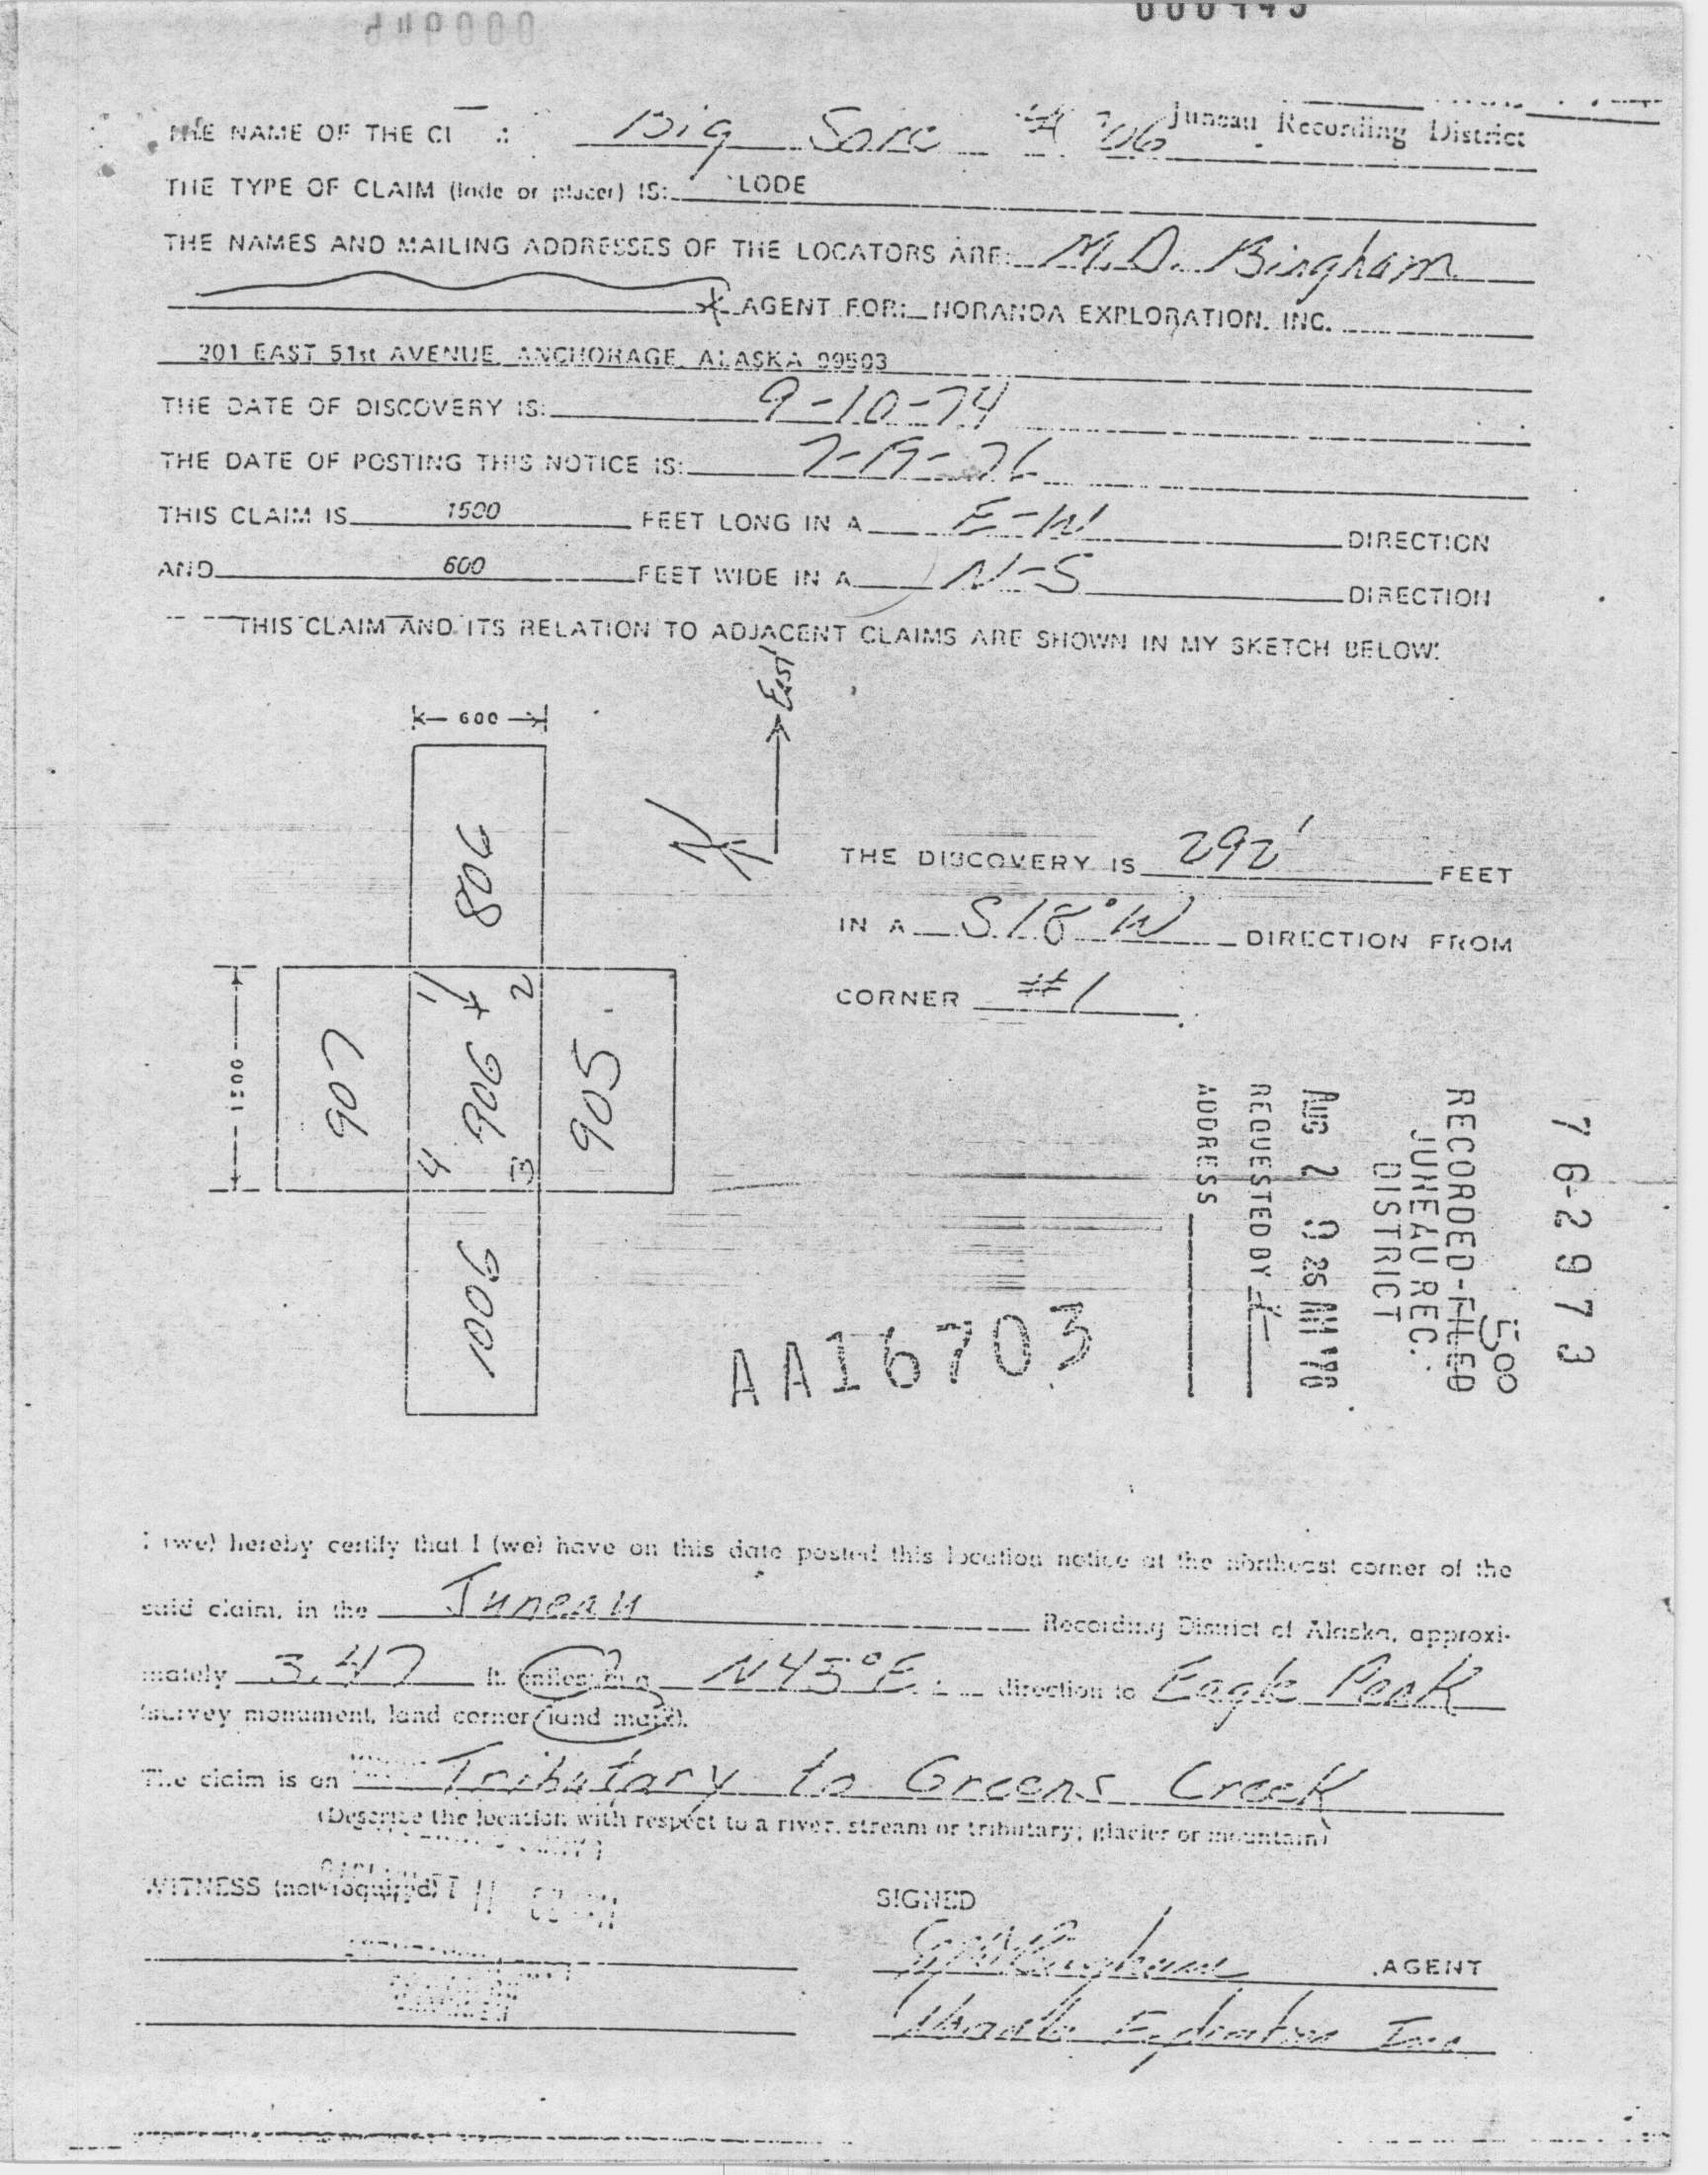 Juneau Recording District
THE NAME OF THE CL : Big Sore # 906
THE TYPE OF CLAIM (lode or placer) IS: LODE
THE NAMES AND MAILING ADDRESSES OF THE LOCATORS ARE: M.D. Bingham
AGENT FOR: NORANDA EXPLORATION, INC.
201 EAST 51st AVENUE, ANCHORAGE, ALASKA 99503
THE DATE OF DISCOVERY IS: 9-10-74
THE DATE OF POSTING THIS NOTICE IS: 7-19-76
THIS CLAIM IS 1500 FEET LONG IN A E-W DIRECTION
AND 600 FEET WIDE IN A N-S DIRECTION
THIS CLAIM AND ITS RELATION TO ADJACENT CLAIMS ARE SHOWN IN MY SKETCH BELOW:
East
600
N
806
THE DISCOVERY IS 292' FEET
IN A S18°W DIRECTION FROM
CORNER #1
1 2
1500
907 906 905
4 3
1006
AA16703
76-2973
5.00
RECORDED-FILED
JUNEAU REC.
DISTRICT
AUG 2 9 26 AM '76
REQUESTED BY
ADDRESS
I (we) hereby certify that I (we) have on this date posted this location notice at the northeast corner of the
said claim, in the Juneau Recording District of Alaska, approxi-
mately 3.47 ft. (miles) in a N45°E direction to Eagle Peak
(survey monument, land corner, land mark).
The claim is on Tributary to Greens Creek
(Describe the location with respect to a river, stream or tributary; glacier or mountain)
WITNESS (not required)
SIGNED
Bingham AGENT
Noranda Exploration Inc.